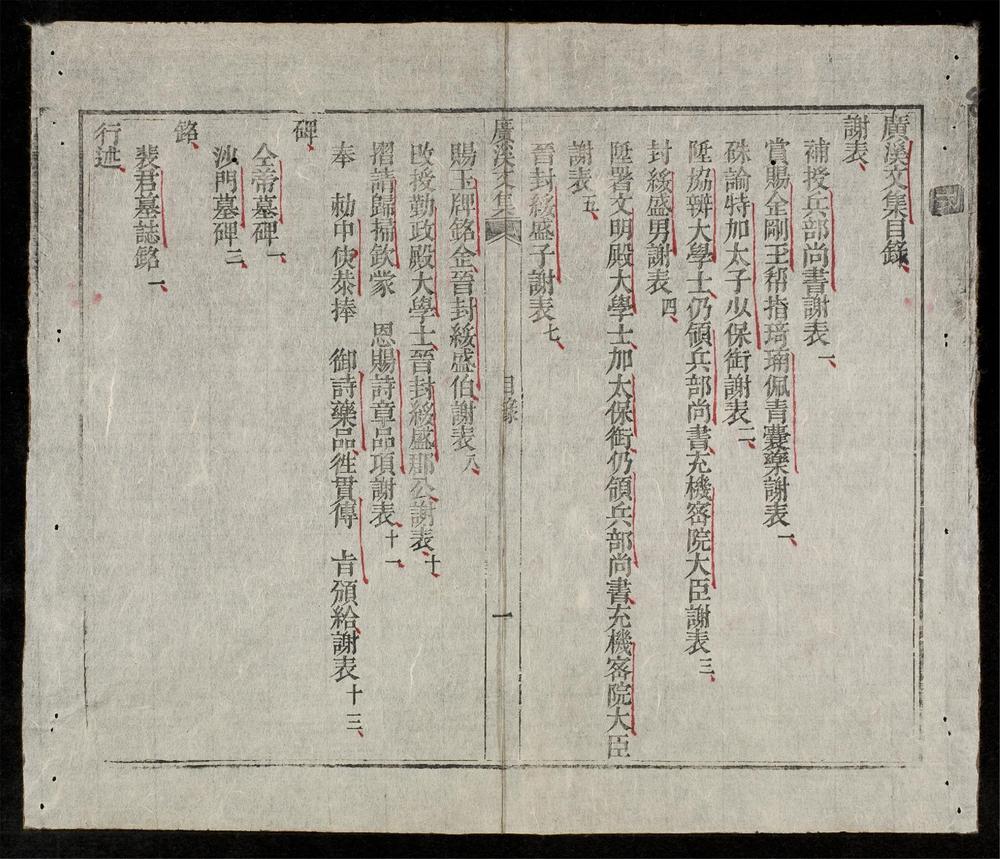 廣溪文集目錄
謝表
補授兵部尚書謝表 一
賞賜金剛王帮指琦瑀佩青囊藥謝表 一
硃諭特加太子少保銜謝表 二
陞協辨大學士仍領兵部尚書充機密院大臣謝表 三
封綏盛男謝表 四
陞署文明殿大學士加太保銜仍領兵部尚書充機密院大臣
謝表 五
晉封綏盛子謝表 七
廣溪文集
目錄
一
賜玉牌銘金晉封綏盛伯謝表 八
改授勤政殿大學士晉封綏盛郡公謝表 十
摺請歸掃欽蒙 恩賜詩章品項謝表 十一
奉 勅中使恭捧 御詩藥品徃貫傳 㫖頒給謝表 十三
碑
全帝墓碑 一
沙門墓碑 三
銘
裴君墓誌銘 一
行述